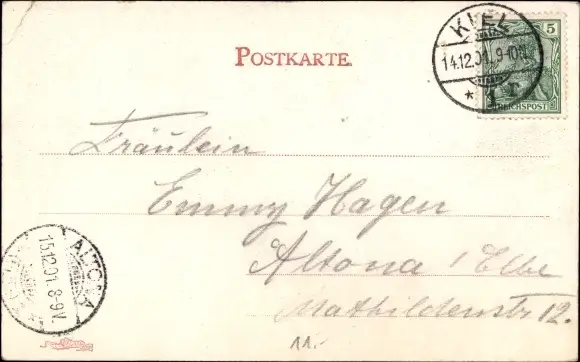 POSTKARTE.
KIEL
14.12.01. 9-10N.
* 1 *
5
REICHSPOST
Fräulein
Emmy Hagen
Altona / Elbe
Mathildenstr 12.
ALTONA
15.12.01. 8-9V.
11.-